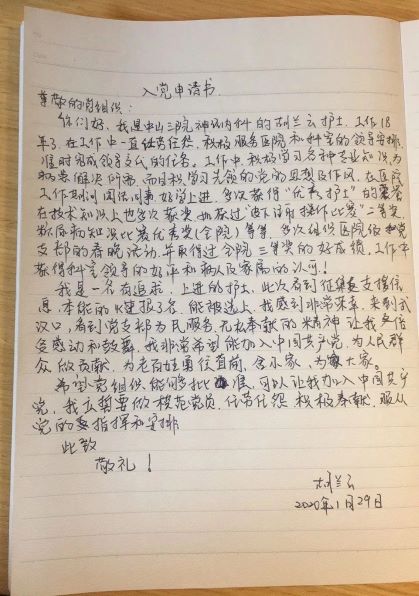 入党申请书
尊敬的党组织：
你们好、我是中山三院神经内科的胡兰云护士、工作18
年了、在工作中一直任劳任怨、积极服从医院和科室的领导安排、
准时完成领导交代的任务。工作中、积极学习各种专业知识、为
病患解决所需、而且积极学习先锋的党的思想及作风、在医院
工作期间团结同事、好学上进、多次获得"优秀护士"的荣誉
在技术知识上也多次获奖、
断层病知识比赛优秀奖（全院）等等、多次组织医院
支部的春晚活动、并取得过全院三等奖的好成绩、工作中
获得科室领导的好评和病人及家属的认可！
我是一名有追求、上进的护士、此次看到征集支援信
息、本能的快速报了名、能被选上、我感到非常荣幸、来到武
汉口、看到党支部为民服务、无私奉献的精神让我备倍
受感动和鼓舞、我非常希望能加入中国共产党、为人民群
众做贡献、为老百姓勇往直前、舍小家、为大家。
希望党组织能够批准、可以让我加入中国共产
党、我立誓要做模范党员、任劳任怨、积极奉献、服从
党的指挥和安排
此致
敬礼！
胡兰云
2020年1月29日